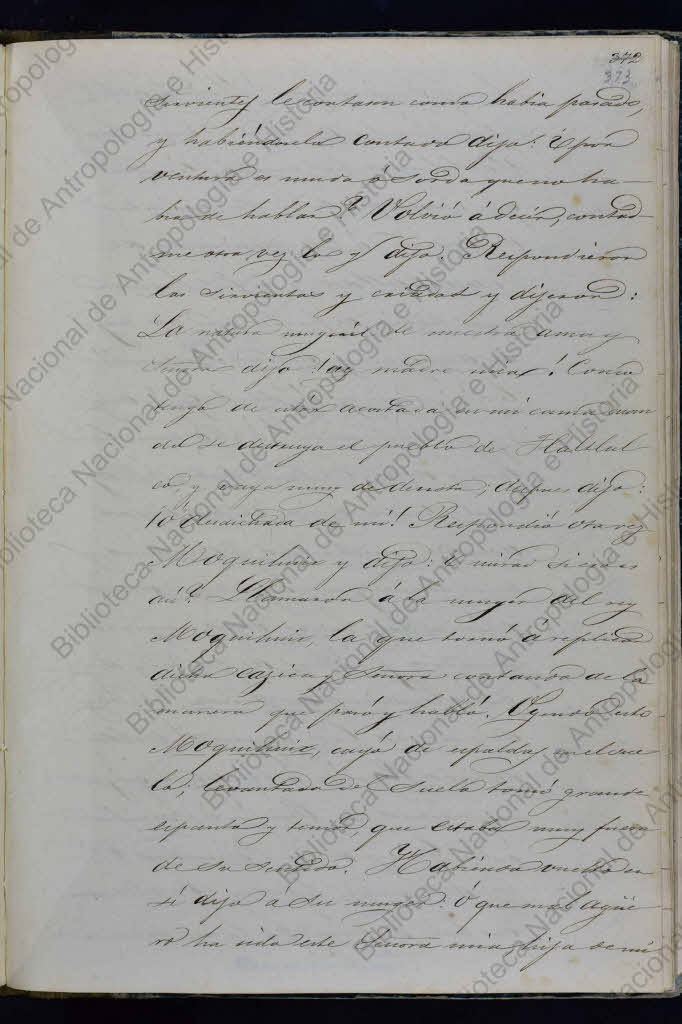 372
373
sirvientes le contasen como habia pasado,
y habiéndosela contado dijo: É por
ventura es muda ó sorda que no ha-
bia de hablar? Volvió á decir, contad-
me otra vez lo q dijo. Respondieron
las sirvientas y y dijeron:
La de mucha ama y
Señora dijo ¡ay madre mia! Como
tengo de estar acostada en mi cama cuan
do se destruya el pueblo de Tlatlul
co, y vaya muy de ; despues dijo:
¡ó desdichada de mi! Respondió otra vez
Moquihuix y dijo: É mirad si eso es
asi? Llamaron á la muger del rey
Moquihuix, la que tornó á replicar
dicha cazica y Señora contando de la
manera que pasó y habló. Oyendo este
Moquihuix, cayó de espaldas en el sue
lo; levantado del suelo tomó grande
espanto y temor, que estaba muy fuera
de su sentido. Habiendo vuelto en
sí dijo á su muger: Ó que mal agüe
ro ha sido este Señora mia, hija de mi
Biblioteca Nacional de Antropología e Historia